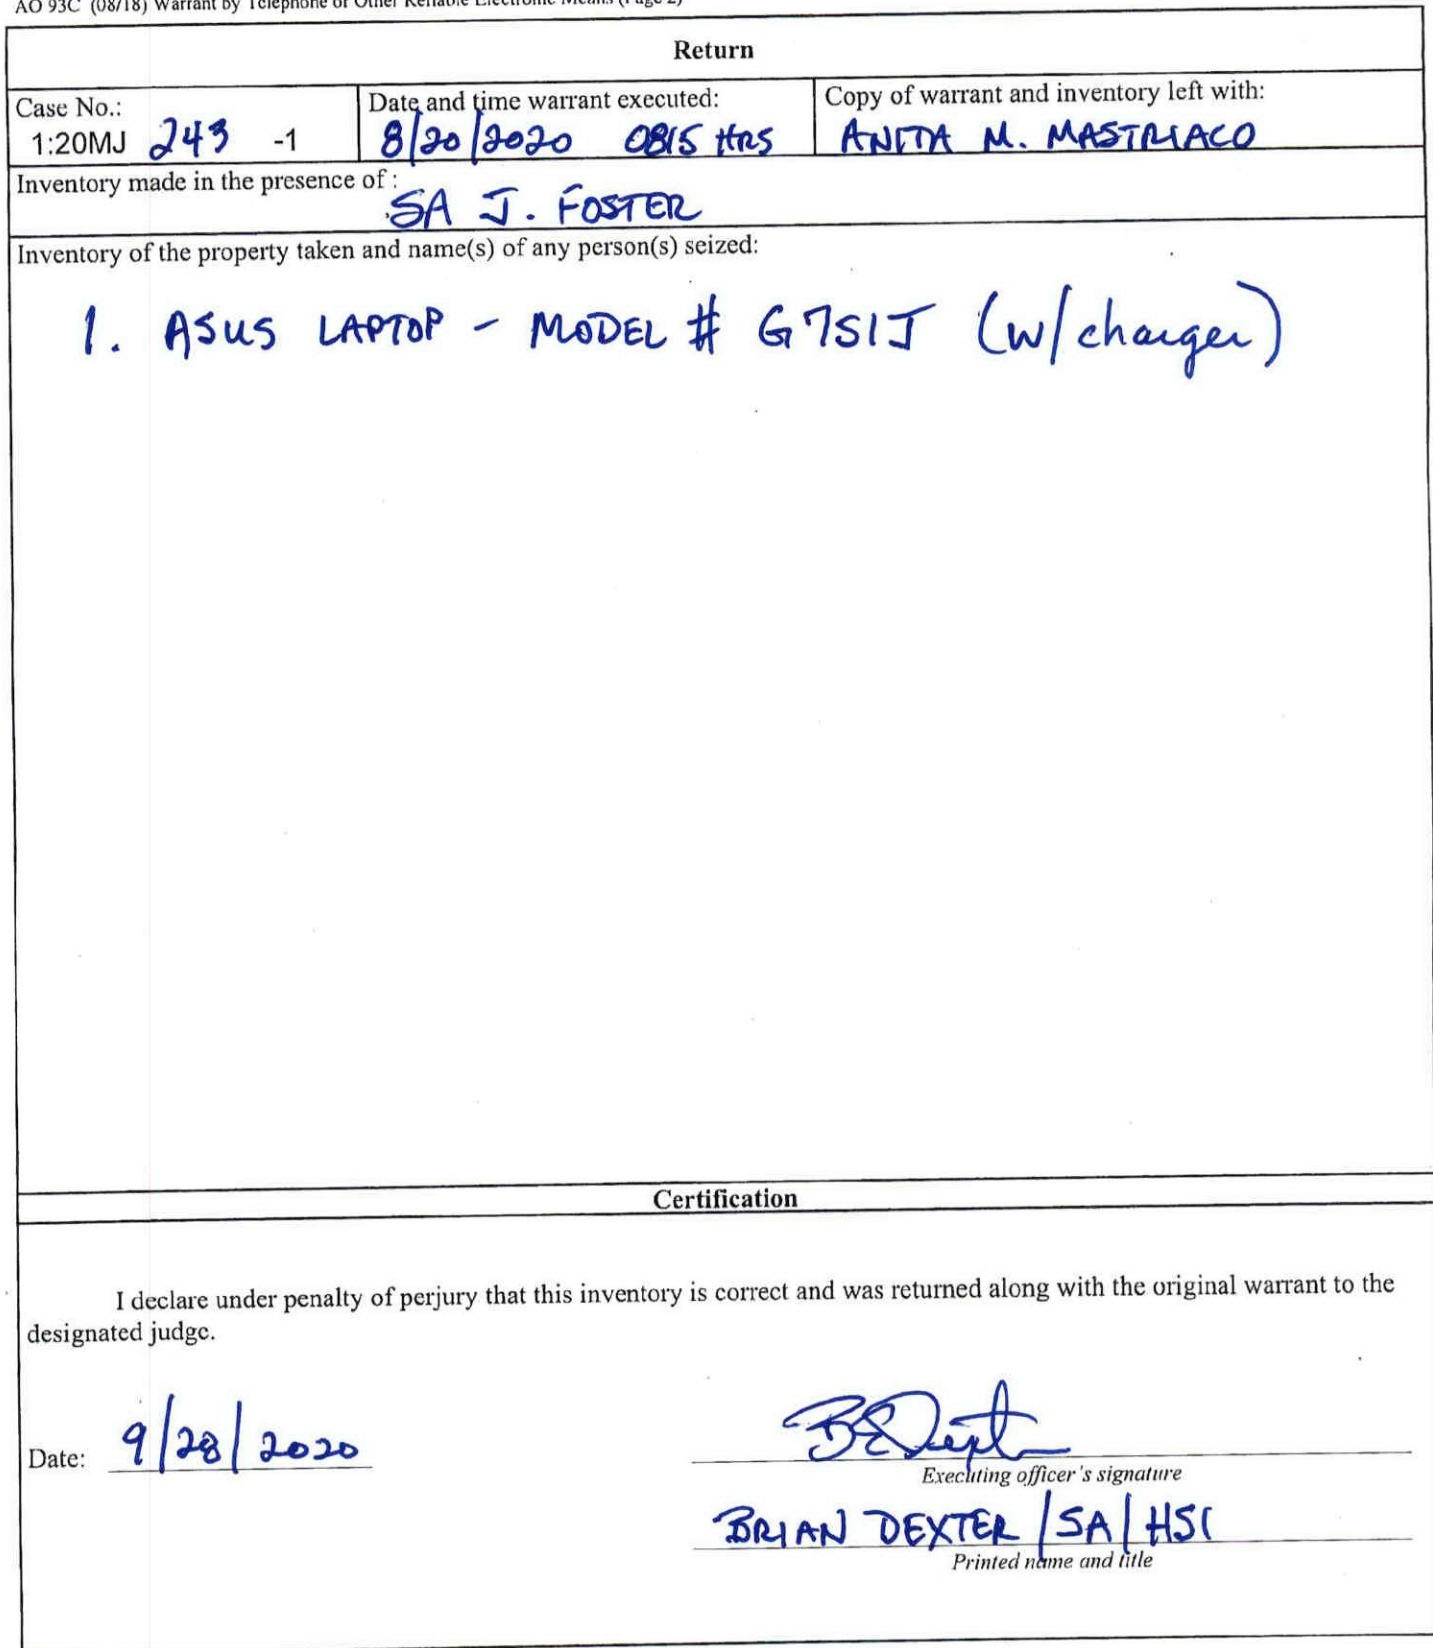 AO 93C (08/18) Warrant by Telephone or Other Reliable Electronic Means (Page 2)
Return
Case No.: Date and time warrant executed: Copy of warrant and inventory left with:
1:20MJ 243 -1 8/20/2020 0815 HRS ANITA M. MASTRIACO
Inventory made in the presence of :
SA J. FOSTER
Inventory of the property taken and name(s) of any person(s) seized:
1. ASUS LAPTOP - MODEL # G751J (w/charger)
Certification
I declare under penalty of perjury that this inventory is correct and was returned along with the original warrant to the
designated judge.
Date: 9/28/2020
BEDexter
Executing officer's signature
BRIAN DEXTER/SA/HSI
Printed name and title